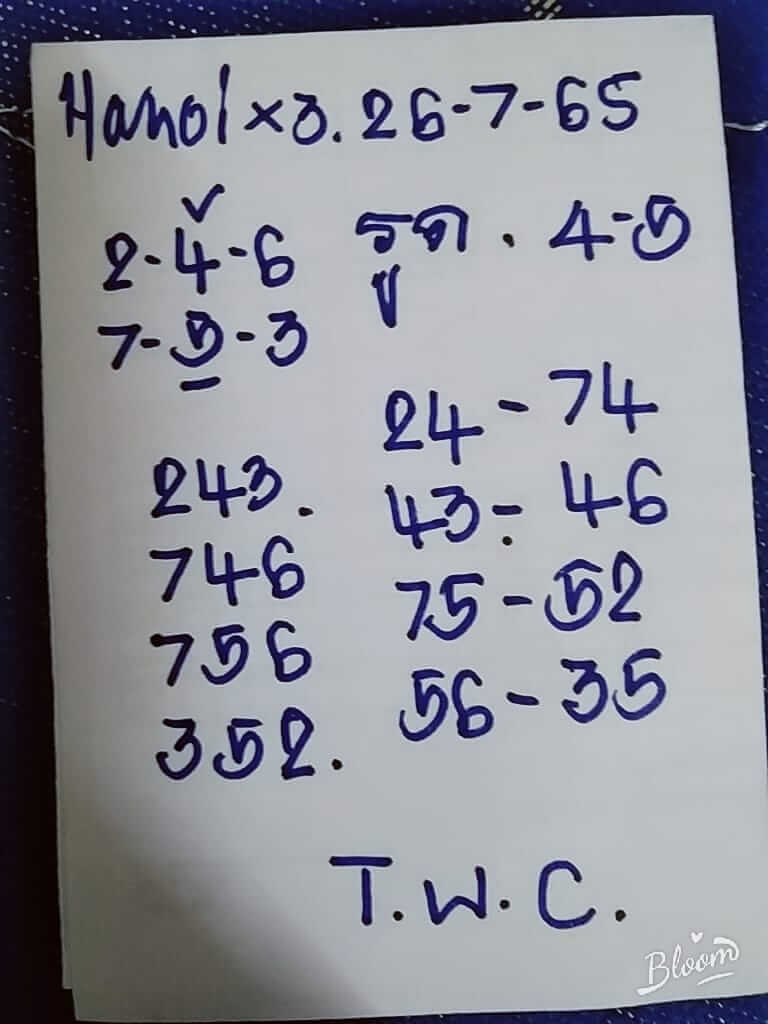 Hanoi ×3. 26-7-65
2-4-6 รูด. 4-5
7-5-3
24-74
243. 43-46
746 75-52
756 56-35
352.
T.W.C.
Bloom